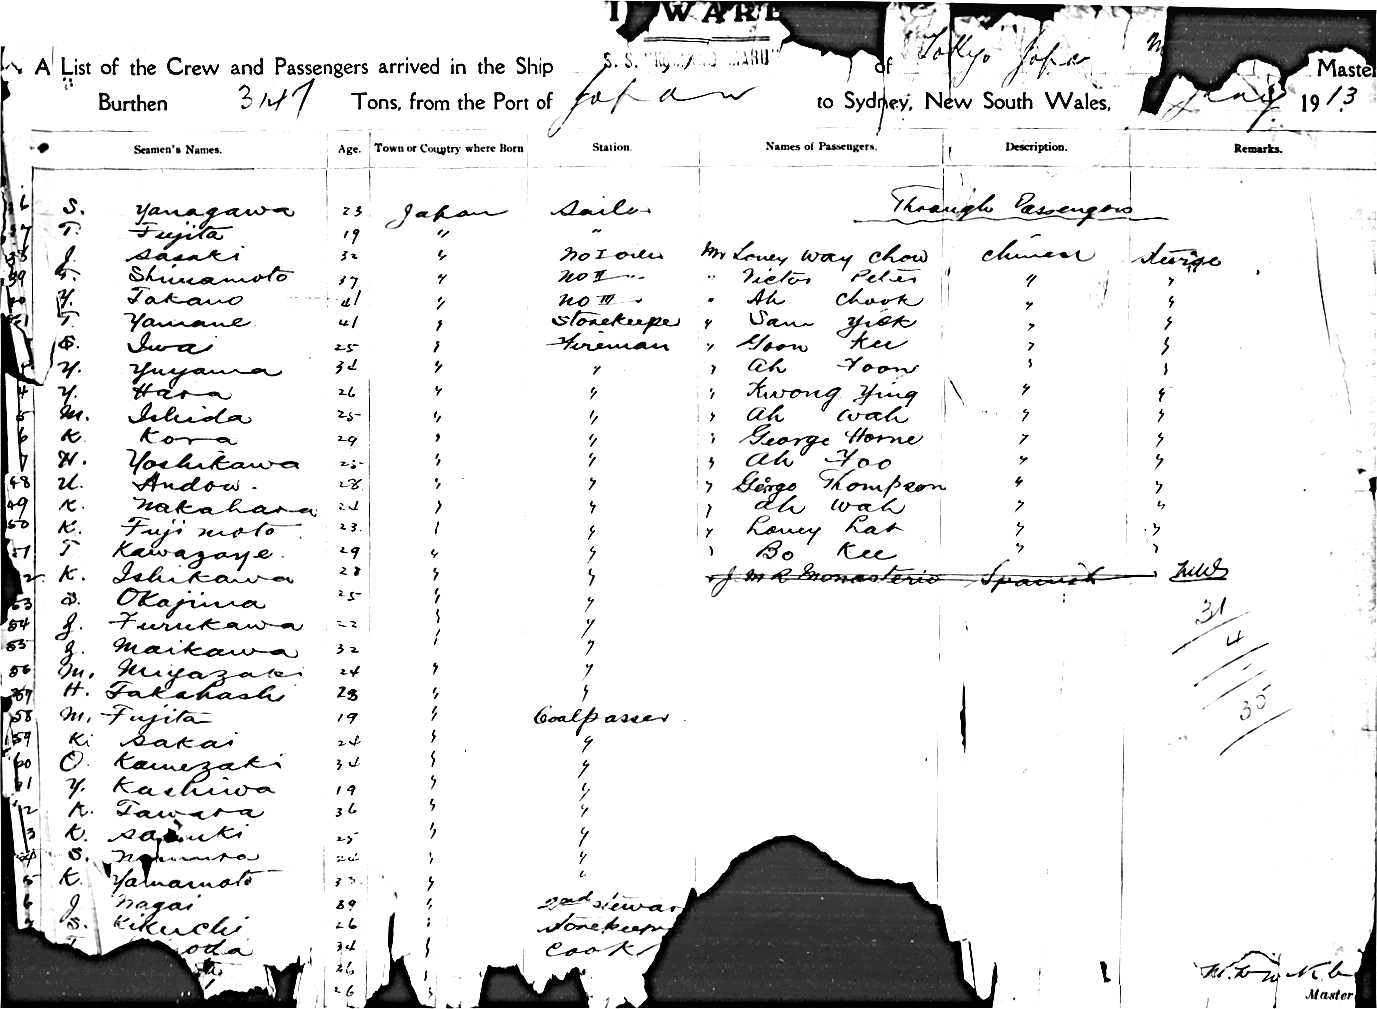 A List of the Crew and Passengers arrived in the Ship S. S. MARU of Tokyo Japan Maste
Burthen 3147 Tons, from the Port of Japan to Sydney, New South Wales, 1913
Seamen's Names. Age. Town or Country where Born Station. Names of Passengers. Description. Remarks.
S. Yanagawa 23 Japan Sailor Through Passengers
T. Fujita 19 " "
J. Sasaki 32 " No I oiler Mr Loney Way Chow Chinese
39 T. Shimamoto 37 " No II " " Victor Peters " "
Y. Takano 41 " No III " " Ah Chook " "
T. Yamane 41 " Storekeeper " Sam Yick " "
S. Iwai 25 " Fireman " Goon Kee " "
Y. Yuyama 34 " " " Ah Foon " "
4 Y. Hara 26 " " " Kwong Ying " "
5 M. Ishida 25 " " " Ah Wah " "
6 K. Kora 29 " " " George Horne " "
7 H. Yoshikawa 25 " " " Ah Foo " "
48 U. Andow. 28 " " " George Thompson " "
49 K. Nakahara 24 " " " Ah Wah " "
50 K. Fujimoto 23 " " " Loney Lat " "
51 T Kawazoye. 29 " " " Bo Kee " "
2 K. Ishikawa 28 " " " J M R Monasterio Spanish "
53 S. Okajima 25 " " 31
54 J. Furukawa 22 " " 4
55 J. Maikawa 32 " "
56 M. Miyazaki 24 " "
57 H. Takahashi 28 " " 35
58 M. Fujita 19 " Coalpasser
59 K. Sakai 24 " "
60 O. Kamezaki 34 " "
61 Y. Kashiwa 19 " "
2 K. Tawara 36 " "
3 K. 25 " "
4 S. 24 " "
5 K. Yamamoto 33 " "
6 J. Nagai 39 " 2nd Stewar
S. Kikuchi 26 " Storekeepe
T. oda 34 " Cook
26 "
26 "
Master